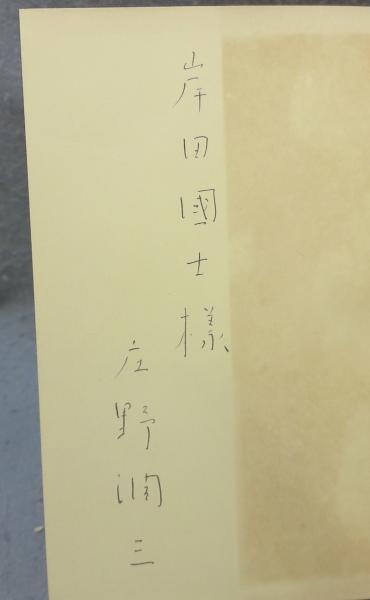 岸田國士様
庄野潤三